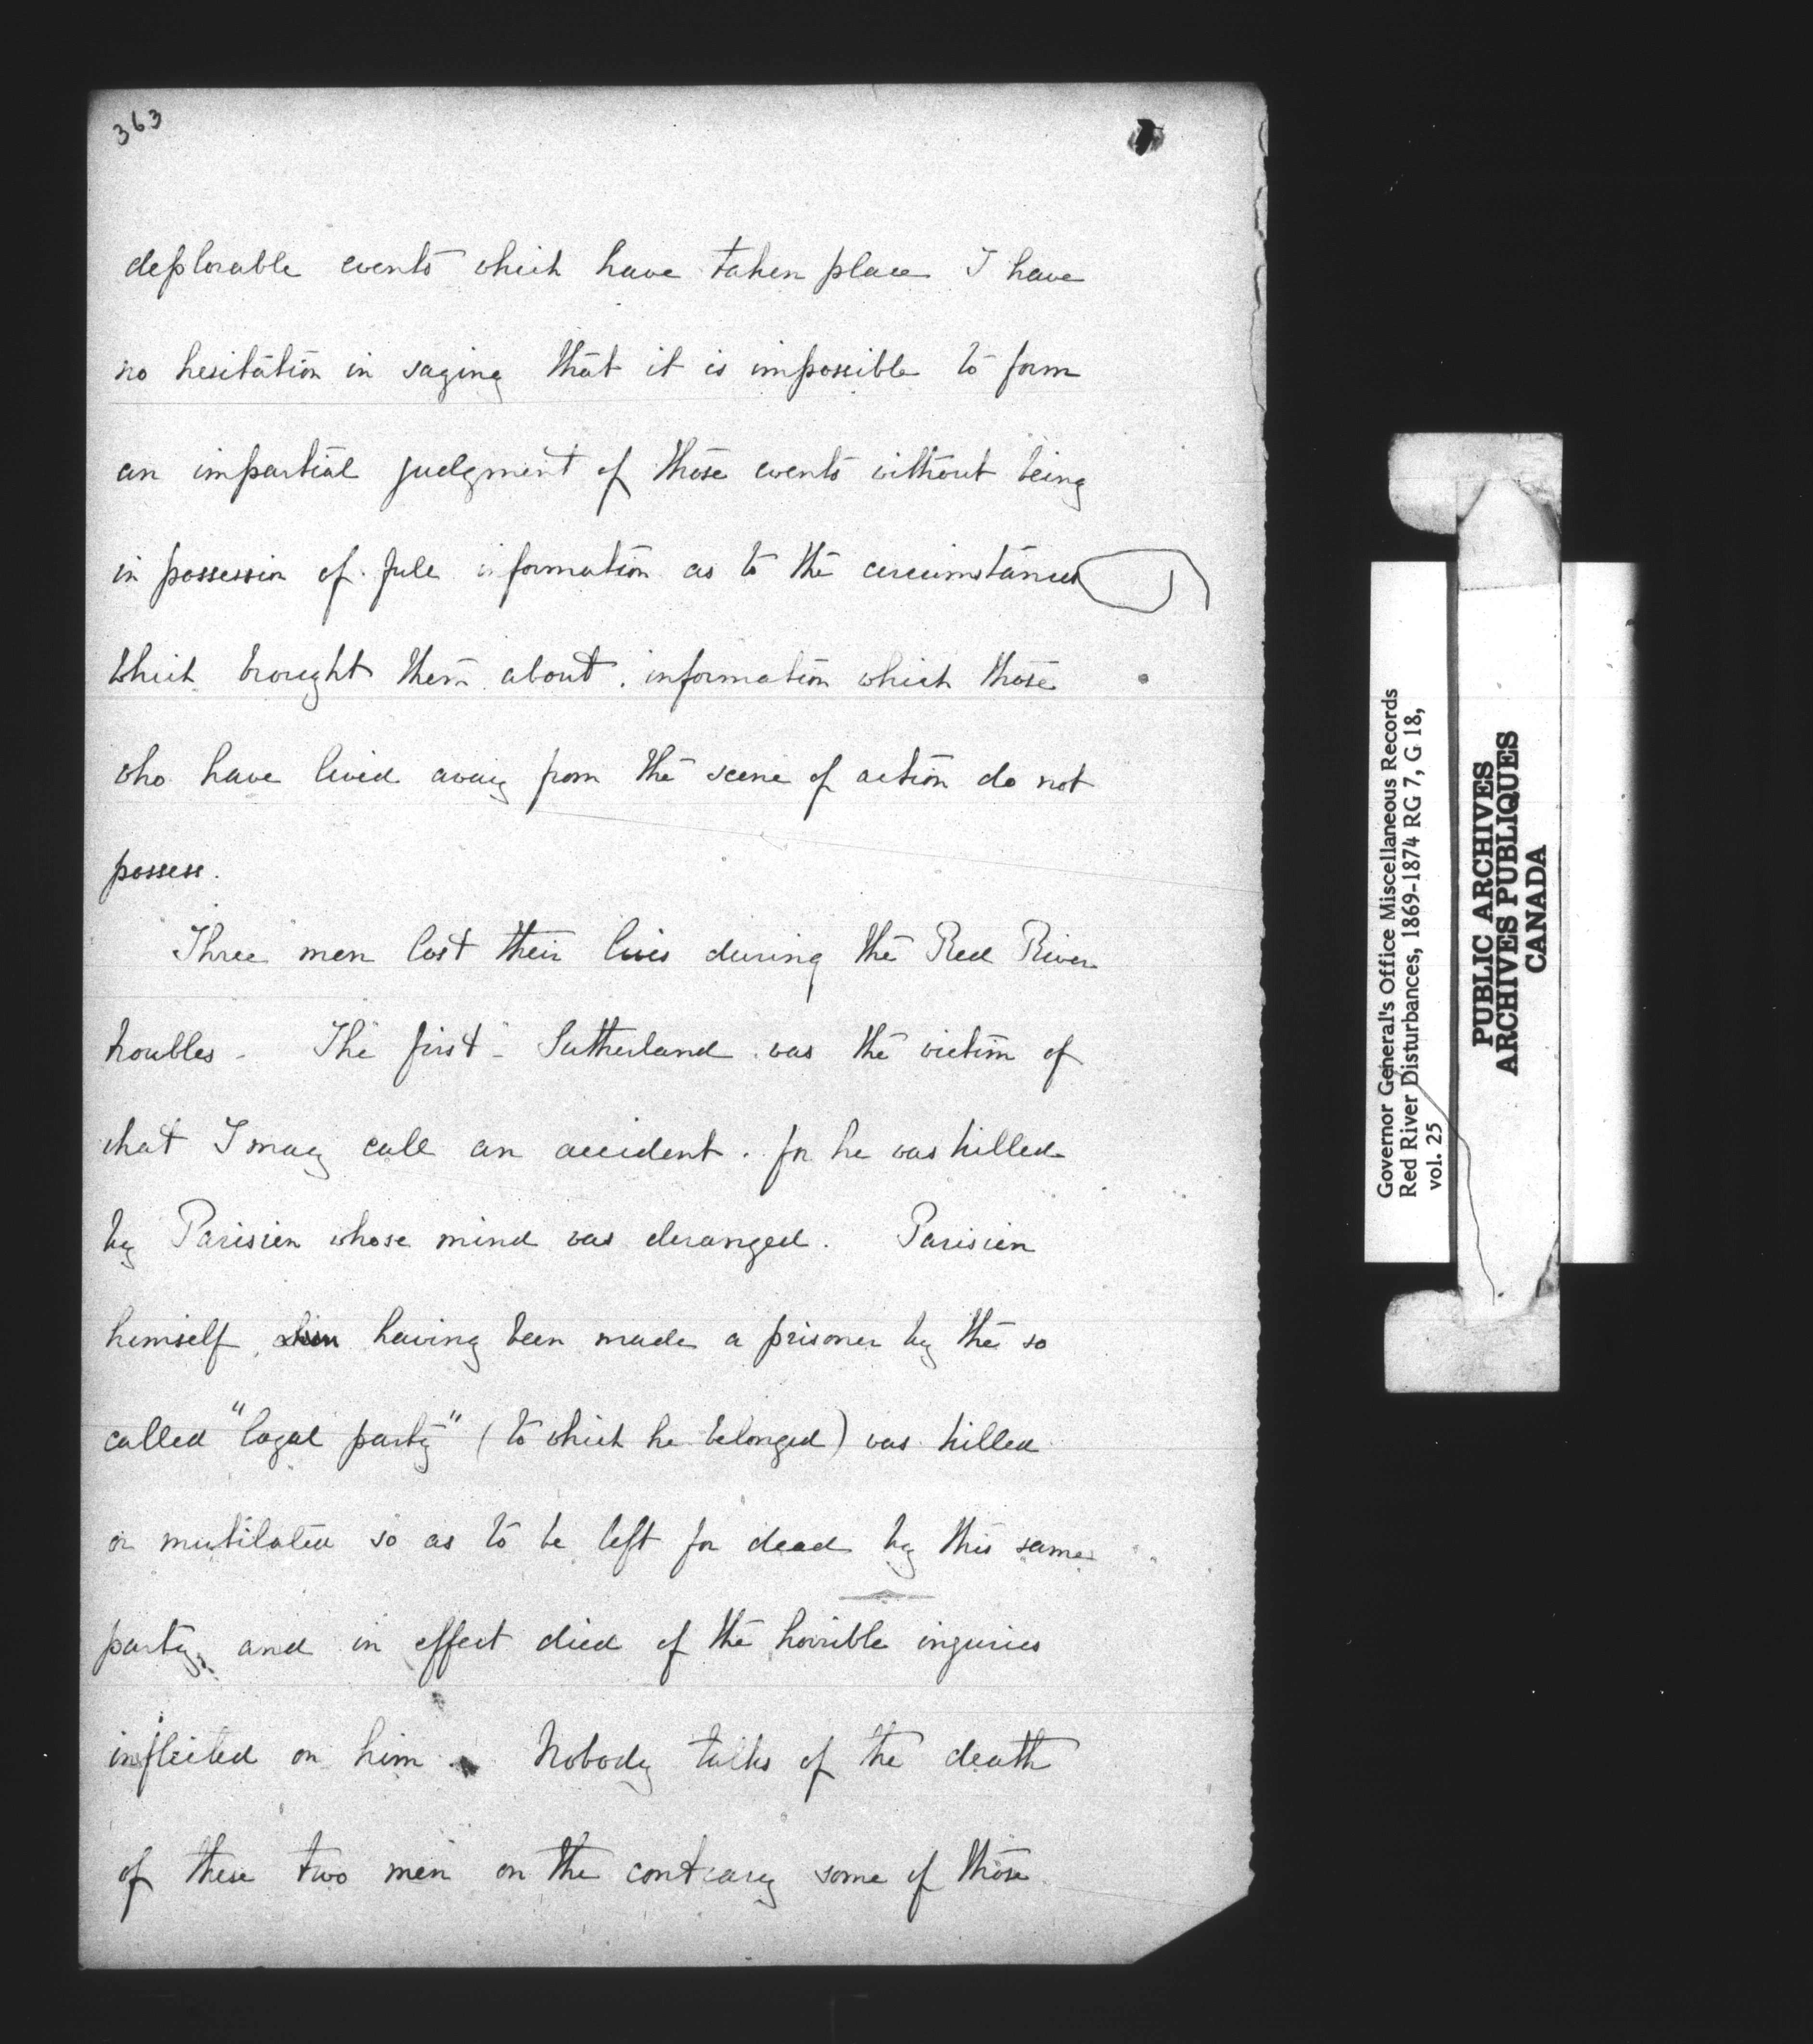 363
7
deplorable events which have taken place I have
no hesitation in saying that it is impossible to form
an impartial judgment of those events without being
in possession of full information as to the circumstances
which brought them about. information which those
who have lived away from the scene of action do not
possess.
Three men lost their lives during the Red River
troubles - The first - Sutherland was the victim of
what I may call an accident. for he was killed
by Parisien whose mind was deranged. Parisien
himself, having been made a prisoner by the so
called "loyal party" (to which he belonged) was killed
or mutilated so as to be left for dead by this same
party, and in effect died of the horrible injuries
inflicted on him. Nobody talks of the death
of these two men on the contrary some of those
Governor General's Office Miscellaneous Records
Red River Disturbances, 1869-1874 RG 7, G 18,
vol. 25
PUBLIC ARCHIVES
ARCHIVES PUBLIQUES
CANADA